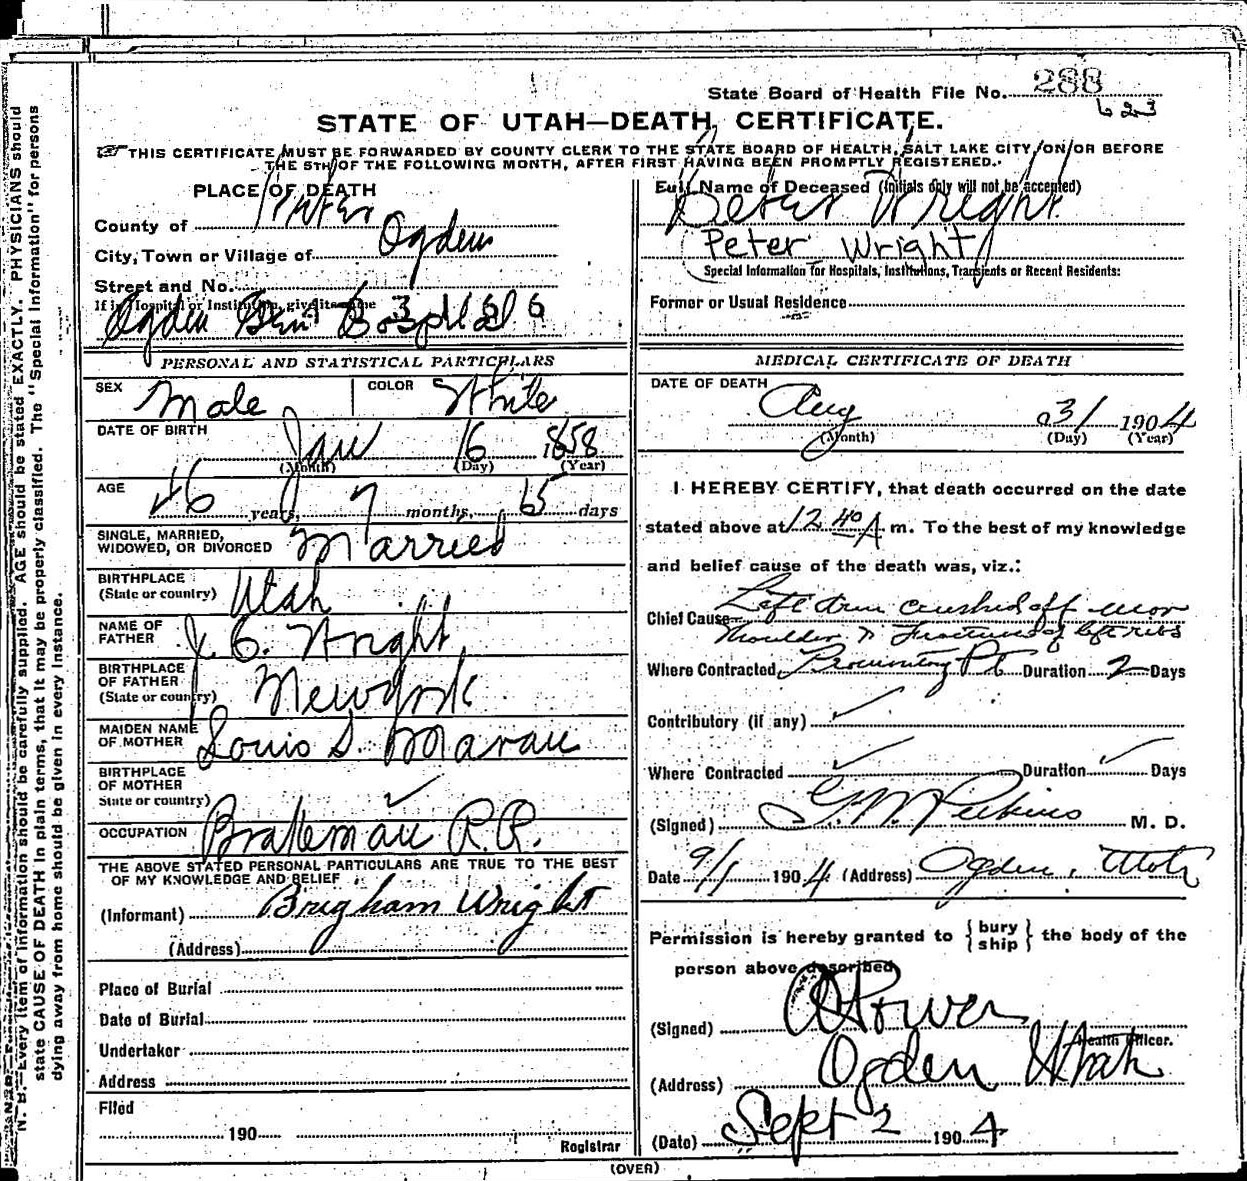 State Board of Health File No. 288
623
STATE OF UTAH—DEATH CERTIFICATE.
THIS CERTIFICATE MUST BE FORWARDED BY COUNTY CLERK TO THE STATE BOARD OF HEALTH, SALT LAKE CITY, ON OR BEFORE
THE 5TH OF THE FOLLOWING MONTH, AFTER FIRST HAVING BEEN PROMPTLY REGISTERED.
PLACE OF DEATH
County of
City, Town or Village of Ogden
Street and No.
If in Hospital or Institution, give its name
Ogden Gen Hospital
Full Name of Deceased (Initials only will not be accepted)
Peter Wright
Peter Wright
Special Information for Hospitals, Institutions, Transients or Recent Residents:
Former or Usual Residence
PERSONAL AND STATISTICAL PARTICULARS
SEX Male COLOR White
DATE OF BIRTH
Jan 16 1858
(Month) (Day) (Year)
AGE
46 years, 7 months, 15 days
SINGLE, MARRIED,
WIDOWED, OR DIVORCED Married
BIRTHPLACE
(State or country) Utah
NAME OF
FATHER J. C. Wright
BIRTHPLACE
OF FATHER
(State or country) New York
MAIDEN NAME
OF MOTHER Louis S.
BIRTHPLACE
OF MOTHER
State or country)
OCCUPATION Brakeman R.R.
THE ABOVE STATED PERSONAL PARTICULARS ARE TRUE TO THE BEST
OF MY KNOWLEDGE AND BELIEF
(Informant) Brigham Wright
(Address)
Place of Burial
Date of Burial
Undertaker
Address
Filed
190
Registrar
MEDICAL CERTIFICATE OF DEATH
DATE OF DEATH
Aug 31 1904
(Month) (Day) (Year)
I HEREBY CERTIFY, that death occurred on the date
stated above at 12 40 A m. To the best of my knowledge
and belief cause of the death was, viz.:
Chief Cause Left arm crushed off near
shoulder & Fracture of left ribs
Where Contracted Promontory Pt Duration 2 Days
Contributory (if any)
Where Contracted Duration Days
(Signed) G. M. Perkins M. D.
Date 9/1 1904 (Address) Ogden, Utah
Permission is hereby granted to { bury ship } the body of the
person above described
(Signed) Power
Health Officer.
(Address) Ogden Utah
(Date) Sept 2 1904
(OVER)
N. B.—Every item of information should be carefully supplied. AGE should be stated EXACTLY. PHYSICIANS should
state CAUSE OF DEATH in plain terms, that it may be properly classified. The "Special Information" for persons
dying away from home should be given in every instance.